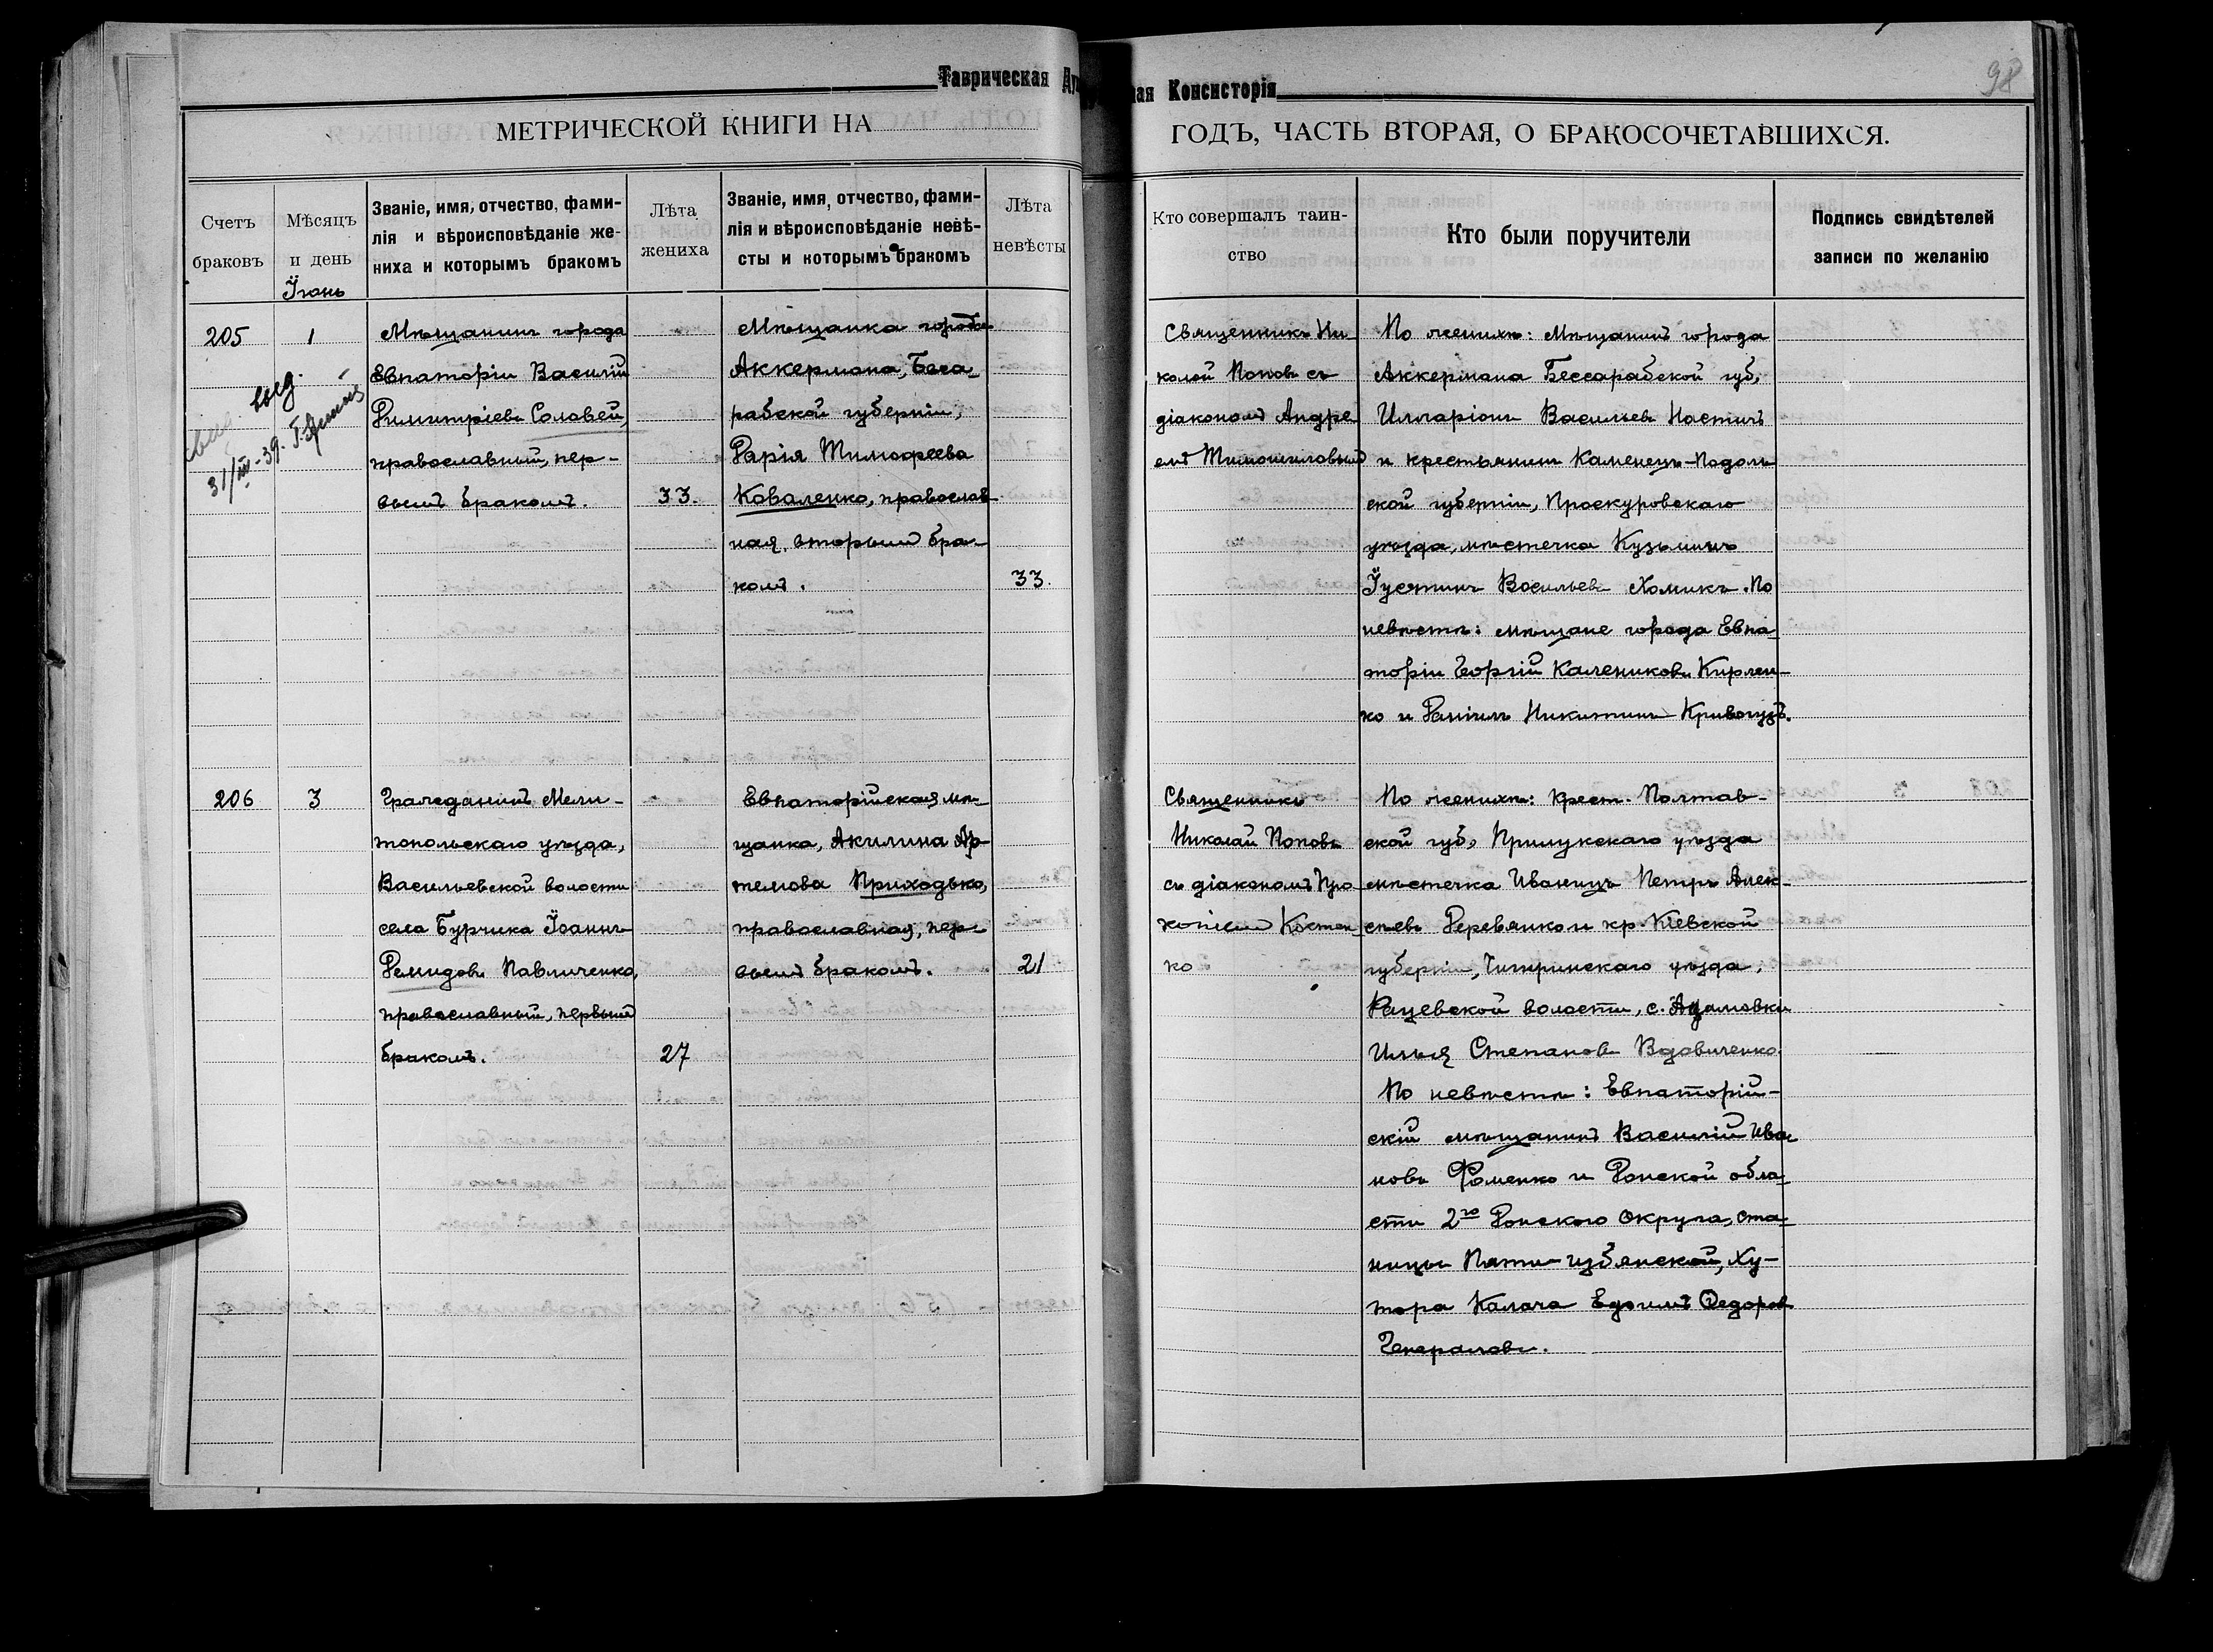 Таврическая Ду
ная Консисторія
98
МЕТРИЧЕСКОЙ КНИГИ НА
ГОДЪ, ЧАСТЬ ВТОРАЯ, О БРАКОСОЧЕТАВШИХСЯ.
Счетъ
браковъ
Мѣсяцъ
и день
Званіе, имя, отчество, фами-
лія и вѣроисповѣданіе же-
ниха и которымъ бракомъ
Лѣта
жениха
Званіе, имя, отчество, фами-
лія и вѣроисповѣданіе невѣ-
сты и которымъ бракомъ
Лѣта
невѣсты
Кто совершалъ таин-
ство
Кто были поручители
Подпись свидѣтелей
записи по желанію
Іюнь
205
1
31/III-39.
Мѣщанинъ города
Евпаторіи Василій
Димитріевъ Соловей,
православный, пер-
вымъ бракомъ.
33.
Мѣщанка города
Аккермана, Бесса-
рабской губерніи,
Дарія Тимофеева
Коваленко, православ-
ная, вторымъ бра-
комъ.
33.
Священникъ Ни-
колай Поповъ съ
діакономъ Андре-
емъ
По женихѣ: Мѣщанинъ города
Аккермана Бессарабской губ.
Илларіонъ Васильевъ Настичъ
и крестьянинъ Каменецъ-Подоль
ской губерніи, Проскуровскаго
уѣзда, мѣстечка Кузьминъ
Іустинъ Васильевъ Хомикъ. По
невѣстѣ: мѣщане города Евпа-
торіи Георгій Калениковъ Кирлен-
ко и Даніилъ Никитинъ Кривогузъ.
206
3
Гражданинъ Мели-
топольскаго уѣзда,
Васильевской волости
села Бурчика Іоаннъ
Демидовъ Павличенко,
православный, первымъ
бракомъ.
27
Евпаторійская мѣ-
щанка, Акилина Ар-
темова Приходько,
православная, пер-
вымъ бракомъ.
21
Священникъ
Николай Поповъ
съ діакономъ Про-
копіемъ Костен-
ко
По женихѣ: Крест. Полтав-
ской губ., Прилукскаго уѣзда
мѣстечка Иваницъ Петръ Алек-
сѣевъ Деревянко и кр. Кіевской
губерніи, Чигиринскаго уѣзда,
Рацевской волости, с. Адамовки
Илья Степановъ Вдовиченко.
По невѣстѣ: Евпаторій-
скій мѣщанинъ Василій Ива-
новъ Фоменко и Донской обла-
сти 2го Донского Округа, ста-
ницы Пяти-избянской, Ху-
тора Калача Ефимъ Федоровъ
Генераловъ.